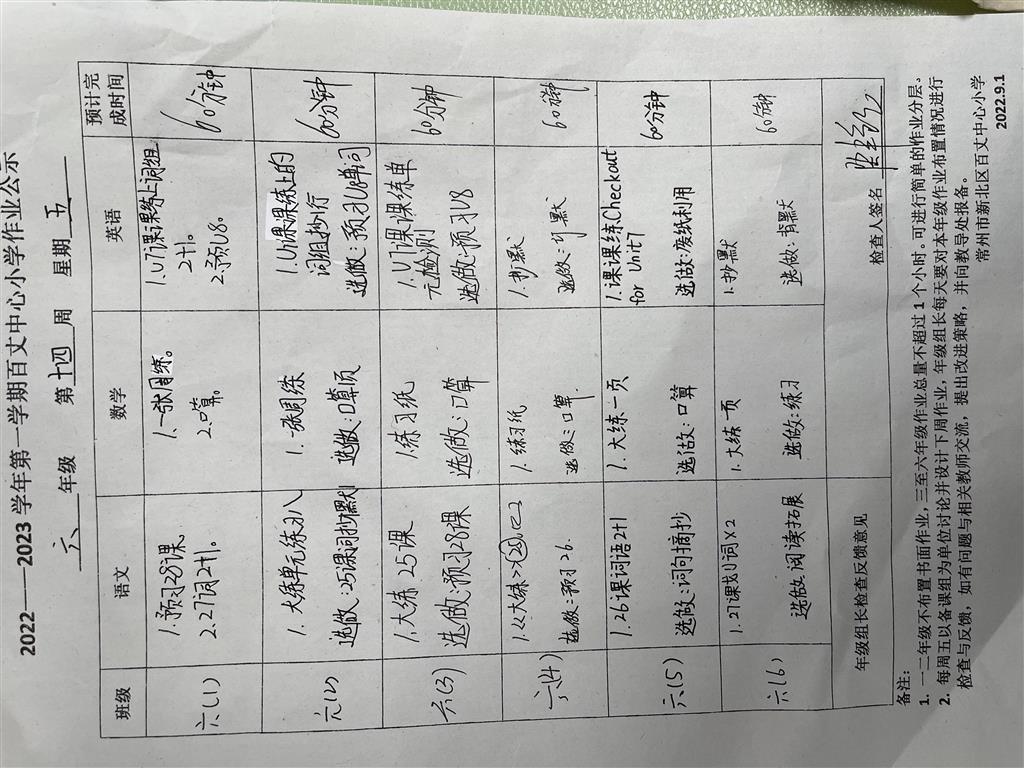 2022——2023 学年第一学期百丈中心小学作业公示
六 年级 第 十四 周 星期 五
班级 语文 数学 英语 预计完成时间
六(1)
1.预习28课
2.27词2+1。
1.一张周练。
2.口算。
1.U7课课练上词组
2+1。
2.预U8。
60分钟
六(2)
1.大练单元练习八
选做:25课词抄默
1.一张周练
选做:口算页
1.U7课课练上的
词组抄1行
选做:预习U8单词
60分钟
六(3)
1.大练25课
选做:预习28课
1.练习纸
选做:口算
1.U7课课练单
元检测
选做:预习U8
60分钟
六(4)
1.《大练》
选做:预习26.
1.练习纸
选做:口算
1.抄默
选做:
60分钟
六(5)
1.26课词语2+1
选做:词句摘抄
1.大练一页
选做:口算
1.课课练Checkout
for Unit7
选做:废纸利用
60分钟
六(6)
1.27课划词×2
选做 阅读拓展
1.大练一页
选做:练习
1.抄默
选做:背默
60分钟
年级组长检查反馈意见 检查人签名
备注:
1. 一二年级不布置书面作业,三至六年级作业总量不超过 1 个小时。可进行简单的作业分层。
2. 每周五以备课组为单位讨论并设计下周作业,年级组长每天要对本年级作业布置情况进行
检查与反馈,如有问题与相关教师交流,提出改进策略,并向教导处报备。
常州市新北区百丈中心小学
2022.9.1